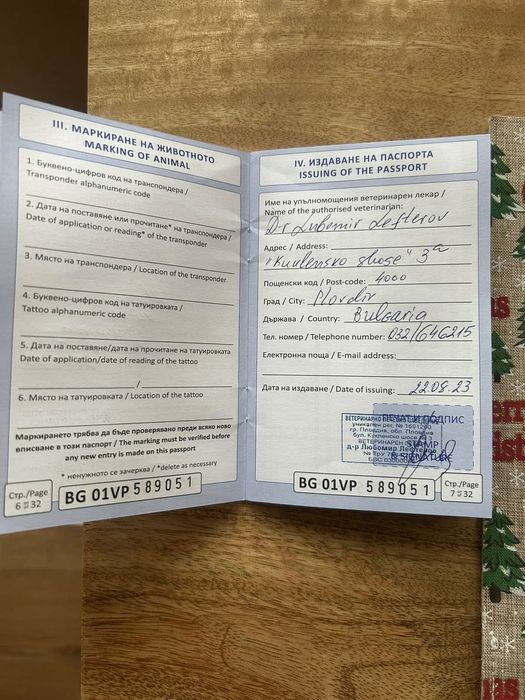 III. МАРКИРАНЕ НА ЖИВОТНОТО
MARKING OF ANIMAL
1. Буквено-цифров код на транспондера /
Transponder alphanumeric code
2. Дата на поставяне или прочитане* на транспондера /
Date of application or reading* of the transponder
3. Място на транспондера / Location of the transponder
4. Буквено-цифров код на татуировката /
Tattoo alphanumeric code
5. Дата на поставяне/дата на прочитане на татуировката
Date of application/date of reading of the tattoo
/
6. Място на татуировката / Location of the tattoo
Маркирането трябва да бъде проверявано преди всяко ново
вписване в този паспорт / The marking must be verified before
any new entry is made on this passport
* ненужното се зачерква / *delete as necessary
Стр./Page
6 от 32
BG 01VP 589051
IV. ИЗДАВАНЕ НА ПАСПОРТА
ISSUING OF THE PASSPORT
Име на упълномощения ветеринарен лекар /
Name of the authorised veterinarian:
Dr Lubomir Lefterov
Адрес / Address:
"Kuklensko shose" 3a
Пощенски код / Post-code: 4000
Град / City: Plovdiv
Държава / Country: Bulgaria
Тел. номер / Telephone number: 032/646215
Електронна поща / E-mail address:
Дата на издаване / Date of issuing: 22.08.23
ПЕЧАТ И ПОДПИС
гр. Пловдив, обл. Пловдив
бул. Кукленско шосе № 3
STAMP
д-р Любомир Лефтеров
& SIGNATURE
BG 01VP 589051
Стр./Page
7 от 32